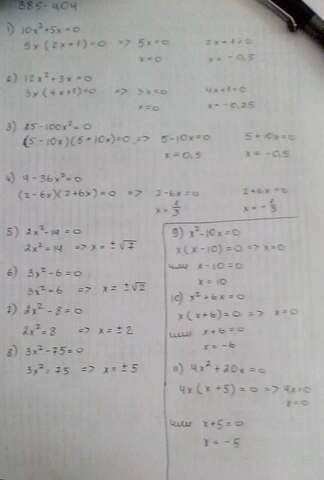 385-404
1) 10x²+5x=0
5x(2x+1)=0 => 5x=0 2x+1=0
x=0 x=-0,5
2) 12x²+3x=0
3x(4x+1)=0 => 3x=0 4x+1=0
x=0 x=-0,25
3) 25-100x²=0
(5-10x)(5+10x)=0 => 5-10x=0 5+10x=0
x=0,5 x=-0,5
4) 4-36x²=0
(2-6x)(2+6x)=0 => 2-6x=0 2+6x=0
x=1/3 x=-1/3
5) 2x²-14=0
2x²=14 => x=±√7
6) 3x²-6=0
3x²=6 => x=±√2
7) 2x²-8=0
2x²=8 => x=±2
8) 3x²-75=0
3x²=75 => x=±5
9) x²-10x=0
x(x-10)=0 => x=0
или x-10=0
x=10
10) x²+6x=0
x(x+6)=0 => x=0
или x+6=0
x=-6
11) 4x²+20x=0
4x(x+5)=0 => 4x=0
x=0
или x+5=0
x=-5